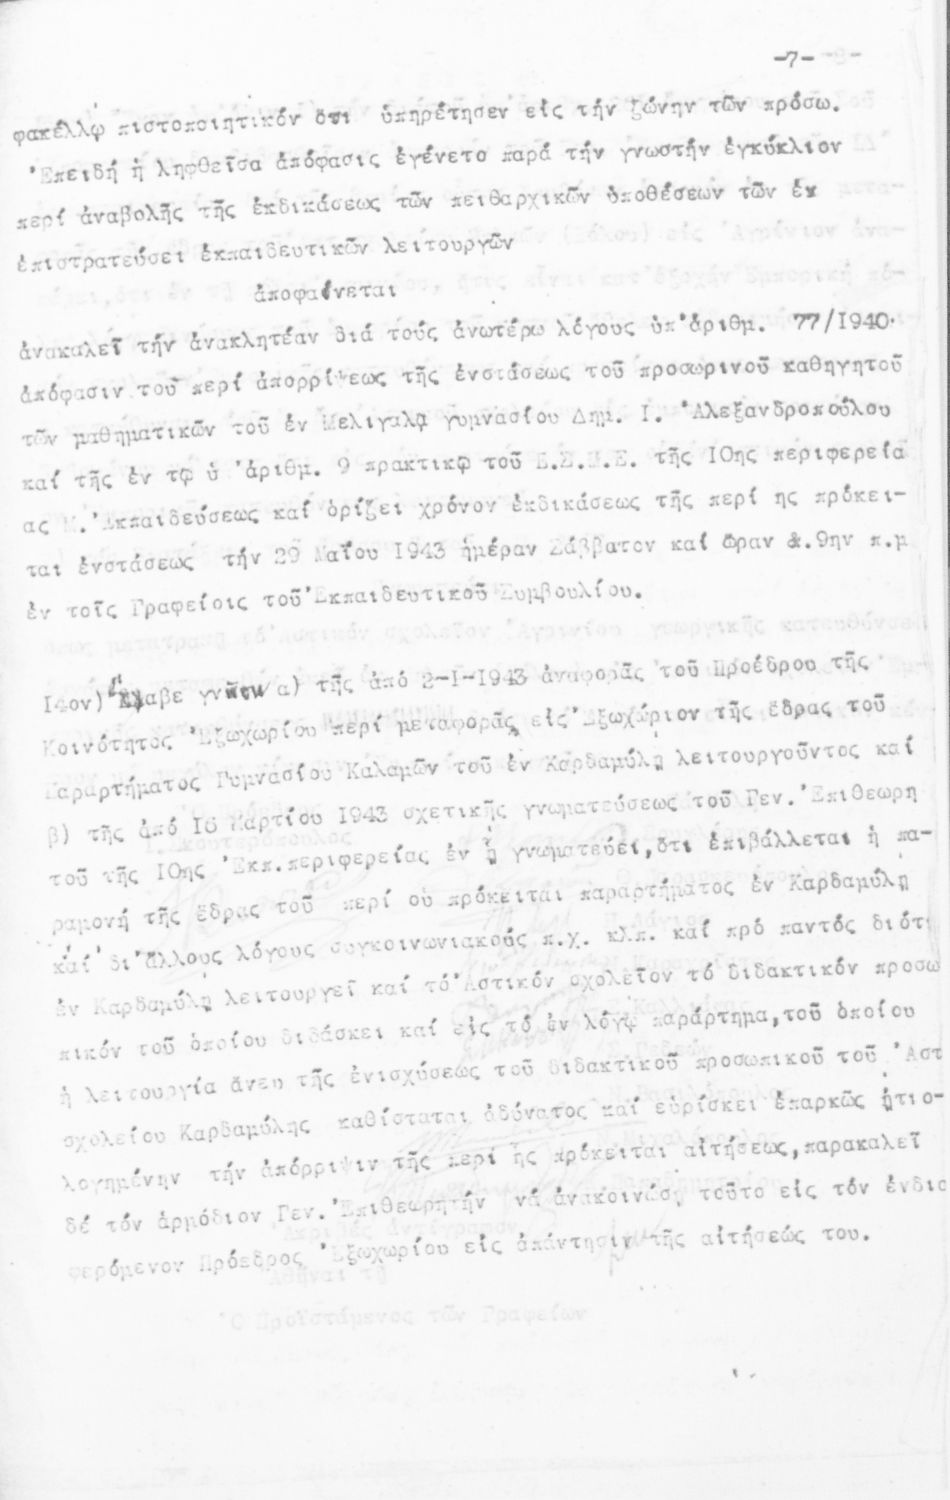 -7-
φακέλλῳ πιστοποιητικόν ὅτι ὑπηρέτησεν εἰς τήν ζώνην τῶν πρόσω.
Ἐπειδή ἡ ληφθεῖσα ἀπόφασις ἐγένετο παρά τήν γνωστήν ἐγκύκλιον
περί ἀναβολῆς τῆς ἐκδικάσεως τῶν πειθαρχικῶν ὑποθέσεων τῶν ἐν
ἐπιστρατεύσει ἐκπαιδευτικῶν λειτουργῶν
ἀποφαίνεται
ἀνακαλεῖ τήν ἀνακλητέαν διά τούς ἀνωτέρω λόγους ὑπ'ἀριθμ. 77/1940.
ἀπόφασιν τοῦ περί ἀπορρίψεως τῆς ἐνστάσεως τοῦ προσωρινοῦ καθηγητοῦ
τῶν μαθηματικῶν τοῦ ἐν Μελιγαλᾷ γυμνασίου Δημ. Ι. Ἀλεξανδροπούλου
καί τῆς ἐν τῷ ὑ 'ἀριθμ. 9 πρακτικῷ τοῦ Ε.Σ.Μ.Ε. τῆς Ι0ης περιφερεία
ας Μ. Ἐκπαιδεύσεως καί ὁρίζει χρόνον ἐκδικάσεως τῆς περί ης πρόκει-
ται ἐνστάσεως τήν 29 Μαΐου 1943 ἡμέραν Σάββατον καί ὥραν 9ην π.μ
ἐν τοῖς Γραφείοις τοῦ Ἐκπαιδευτικοῦ Συμβουλίου.
Ι4ον) α) τῆς ἀπό 2-Ι-1943 ἀναφορᾶς τοῦ Προέδρου τῆς
Κοινότητος Ἐξωχωρίου περί μεταφορᾶς εἰς Ἐξωχώριον τῆς ἕδρας τοῦ
Παραρτήματος Γυμνασίου Καλαμῶν τοῦ ἐν Καρδαμύλῃ λειτουργοῦντος καί
β) τῆς ἀπό Ι6 Μαρτίου 1943 σχετικῆς γνωματεύσεως τοῦ Γεν. Ἐπιθεωρη
τοῦ τῆς Ι0ης Ἐκπ.περιφερείας ἐν ᾗ γνωματεύει,ὅτι ἐπιβάλλεται ἡ πα-
ραμονή τῆς ἕδρας τοῦ περί οὗ πρόκειται παραρτήματος ἐν Καρδαμύλῃ
καί δι'ἄλλους λόγους συγκοινωνιακούς π.χ. κλπ. καί πρό παντός διότι
ἐν Καρδαμύλῃ λειτουργεῖ καί τό Ἀστικόν σχολεῖον τό διδακτικόν προσω
πικόν τοῦ ὁποίου διδάσκει καί εἰς τό ἐν λόγῳ παράρτημα,τοῦ ὁποίου
ἡ λειτουργία ἄνευ τῆς ἐνισχύσεως τοῦ διδακτικοῦ προσωπικοῦ τοῦ Ἀστ
σχολείου Καρδαμύλης καθίσταται ἀδύνατος καί εὑρίσκει ἐπαρκῶς ᾐτιο-
λογημένην τήν ἀπόρριψιν τῆς περί ἧς πρόκειται αἰτήσεως,παρακαλεῖ
δέ τόν ἁρμόδιον Γεν. Ἐπιθεωρητήν νά ἀνακοινώσῃ τοῦτο εἰς τόν ἐνδια
φερόμενον Πρόεδρος Ἐξωχωρίου εἰς ἀπάντησιν τῆς αἰτήσεώς του.